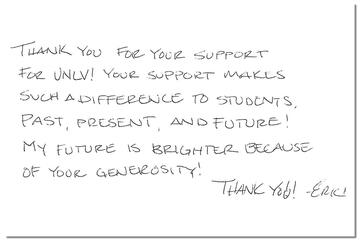 THANK YOU FOR YOUR SUPPORT
FOR UNLV! YOUR SUPPORT MAKES
SUCH A DIFFERENCE TO STUDENTS,
PAST, PRESENT, AND FUTURE!
MY FUTURE IS BRIGHTER BECAUSE
OF YOUR GENEROSITY!
THANK YOU! -ERIC!